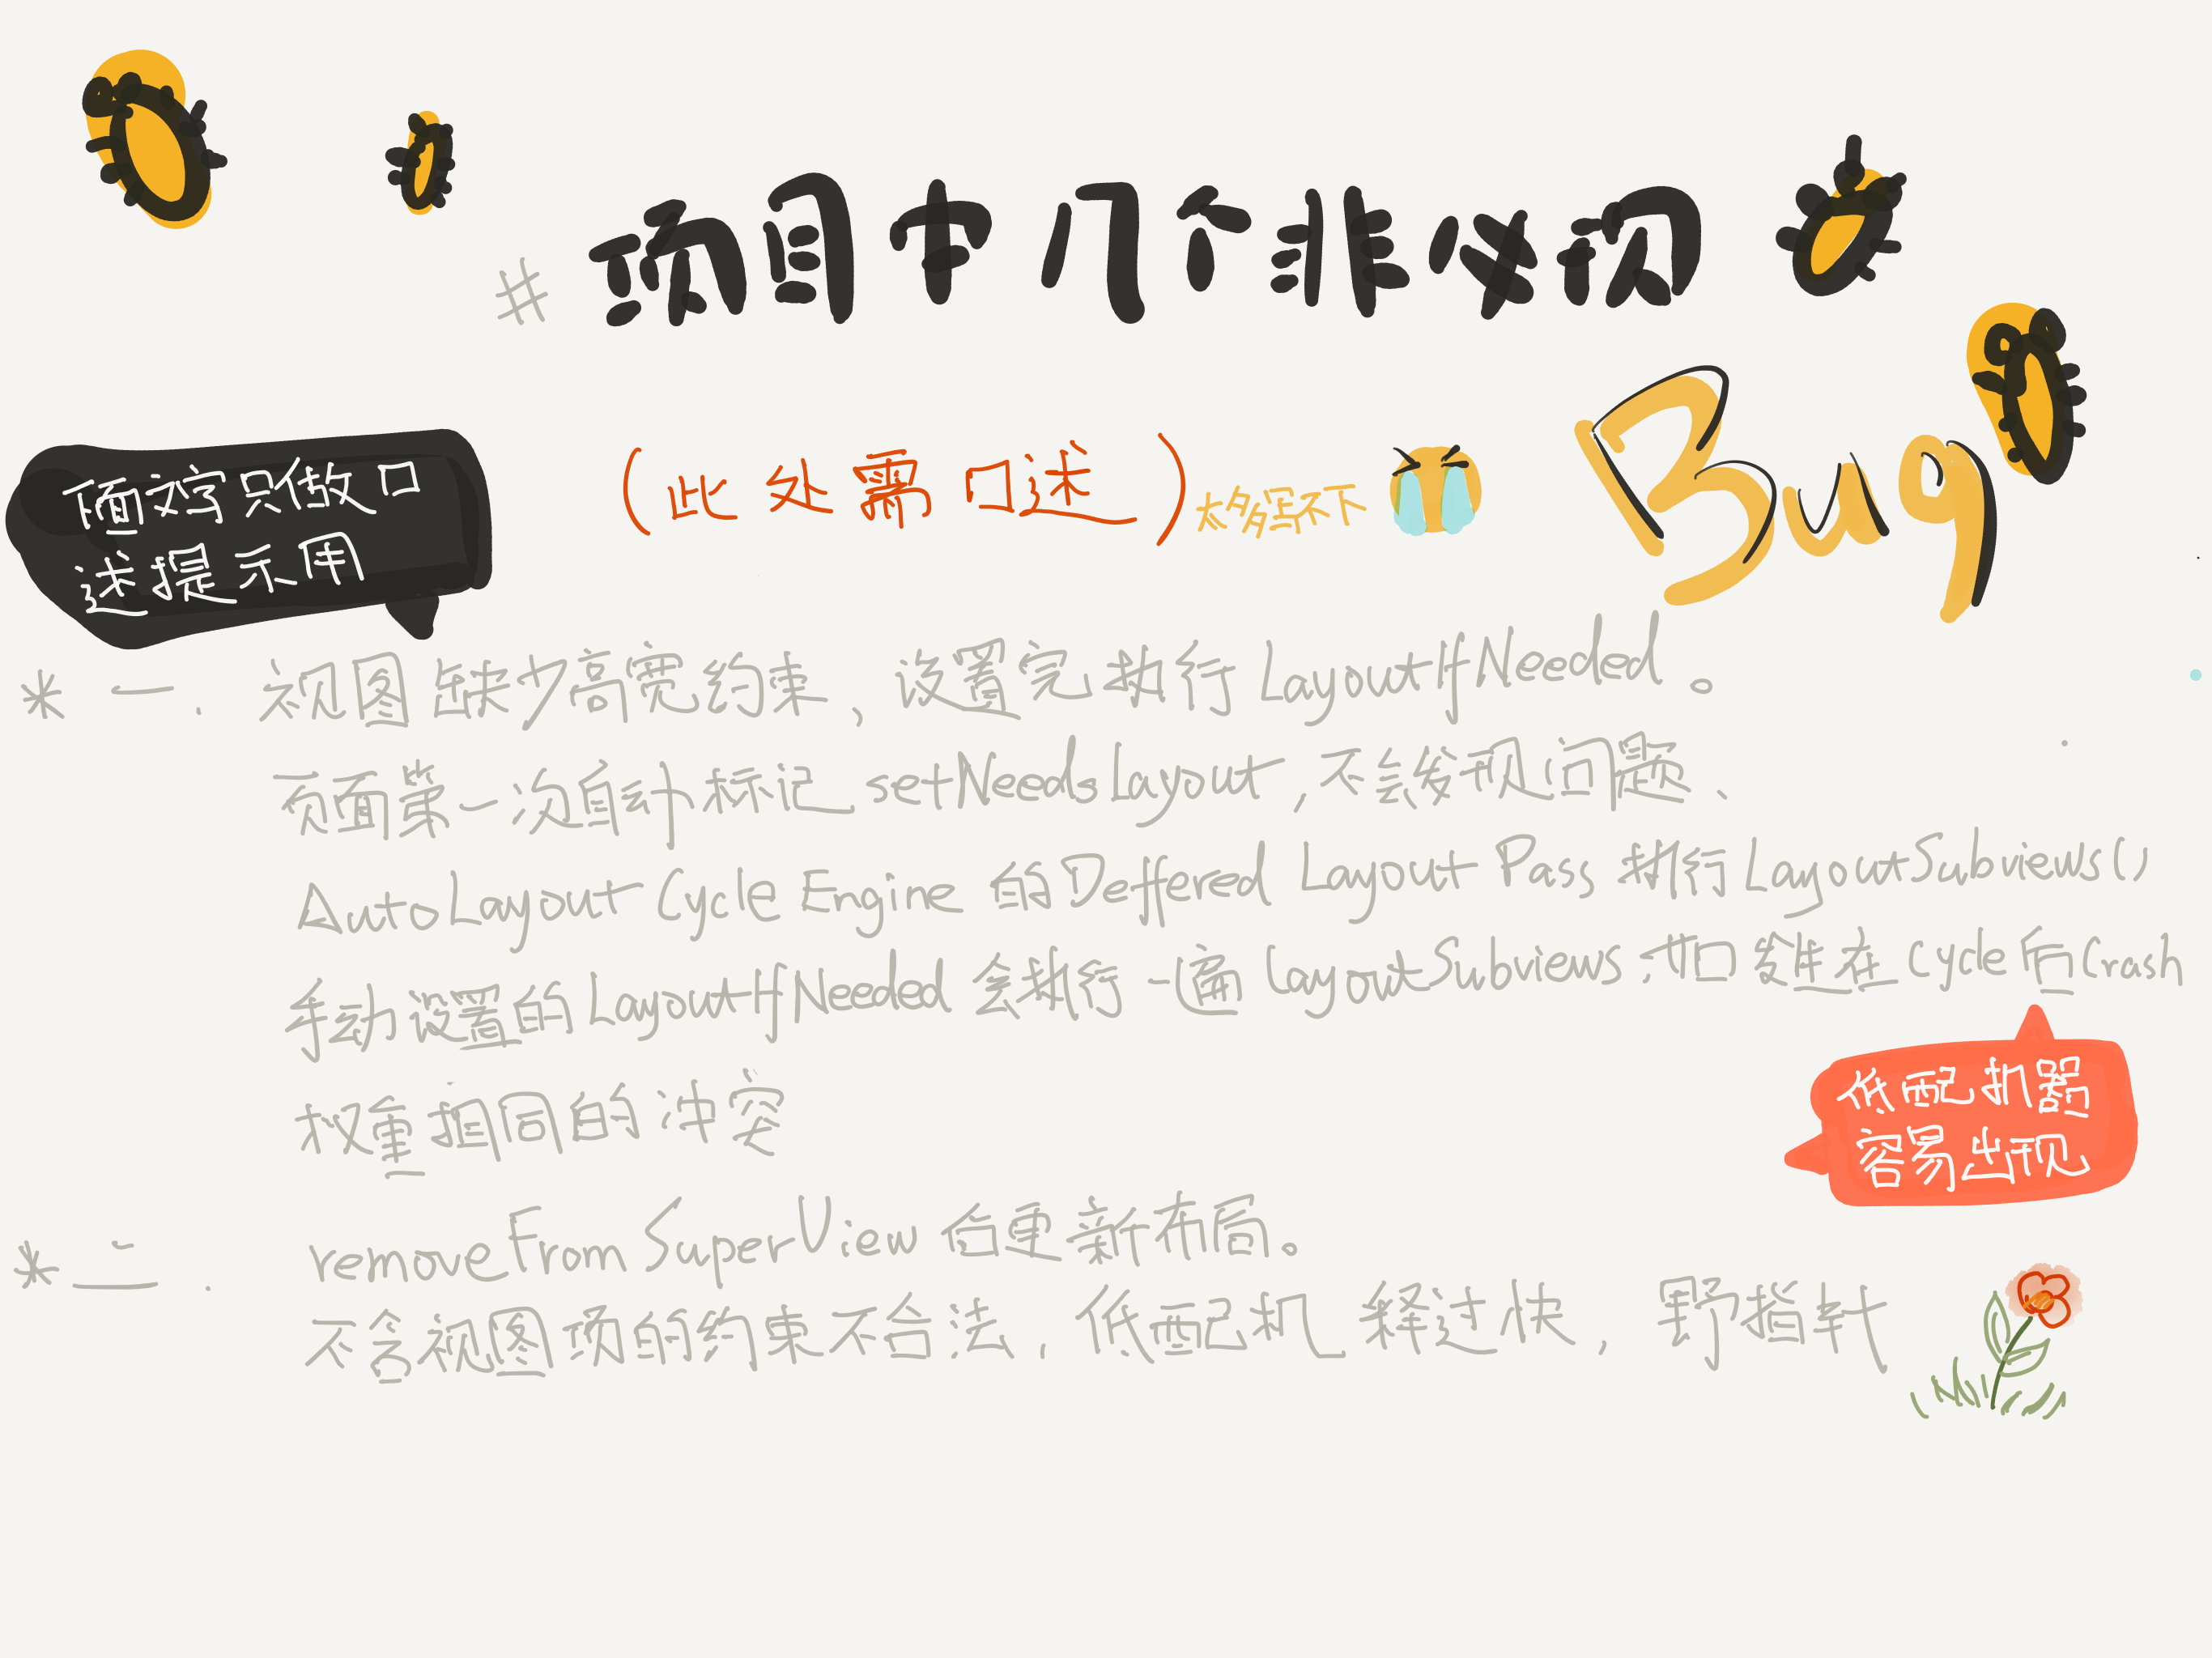 # 项目中几个非必现
Bug
(此处需口述)太多写不下
下面文字只做口
述提示用
* 一. 视图缺少高宽约束,设置完执行LayoutIfNeeded。
页面第一次自动标记setNeedsLayout,不会发现问题、
AutoLayout Cycle Engine 的Deffered Layout Pass 执行LayoutSubviews()
手动设置的LayoutIfNeeded会执行一遍LayoutSubviews,如发生在Cycle后Crash
低配机器
容易出现
权重相同的冲突
* 二. removeFromSuperView后重新布局。
不含视图项的约束不合法,低配机 释过快,野指针